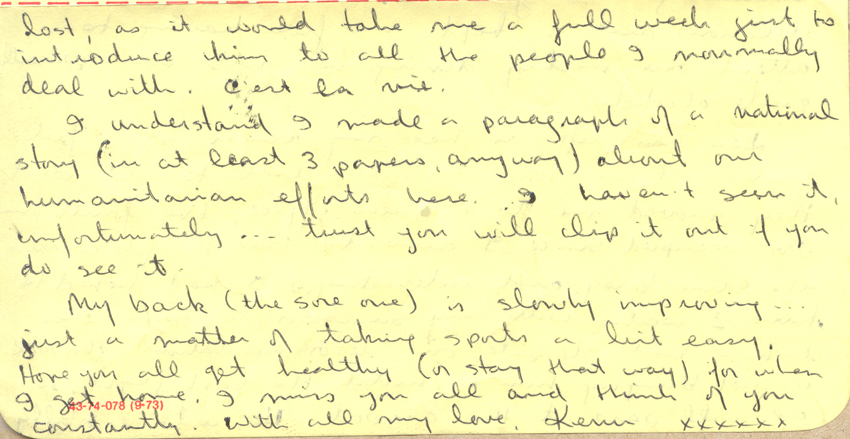 lost, as it would take me a full week just to
introduce him to all the people I normally
deal with. C'est la vie.
I understand I made a paragraph of a national
story (in at least 3 papers, anyway) about our
humanitarian efforts here. I haven't seen it,
unfortunately ... trust you will clip it out if you
do see it.
My back (the sore one) is slowly improving ...
just a matter of taking sports a bit easy.
Hope you all get healthy (or stay that way) for when
I get home. I miss you all and think of you
43-74-078 (9-73)
constantly. With all my love, xxxxxx